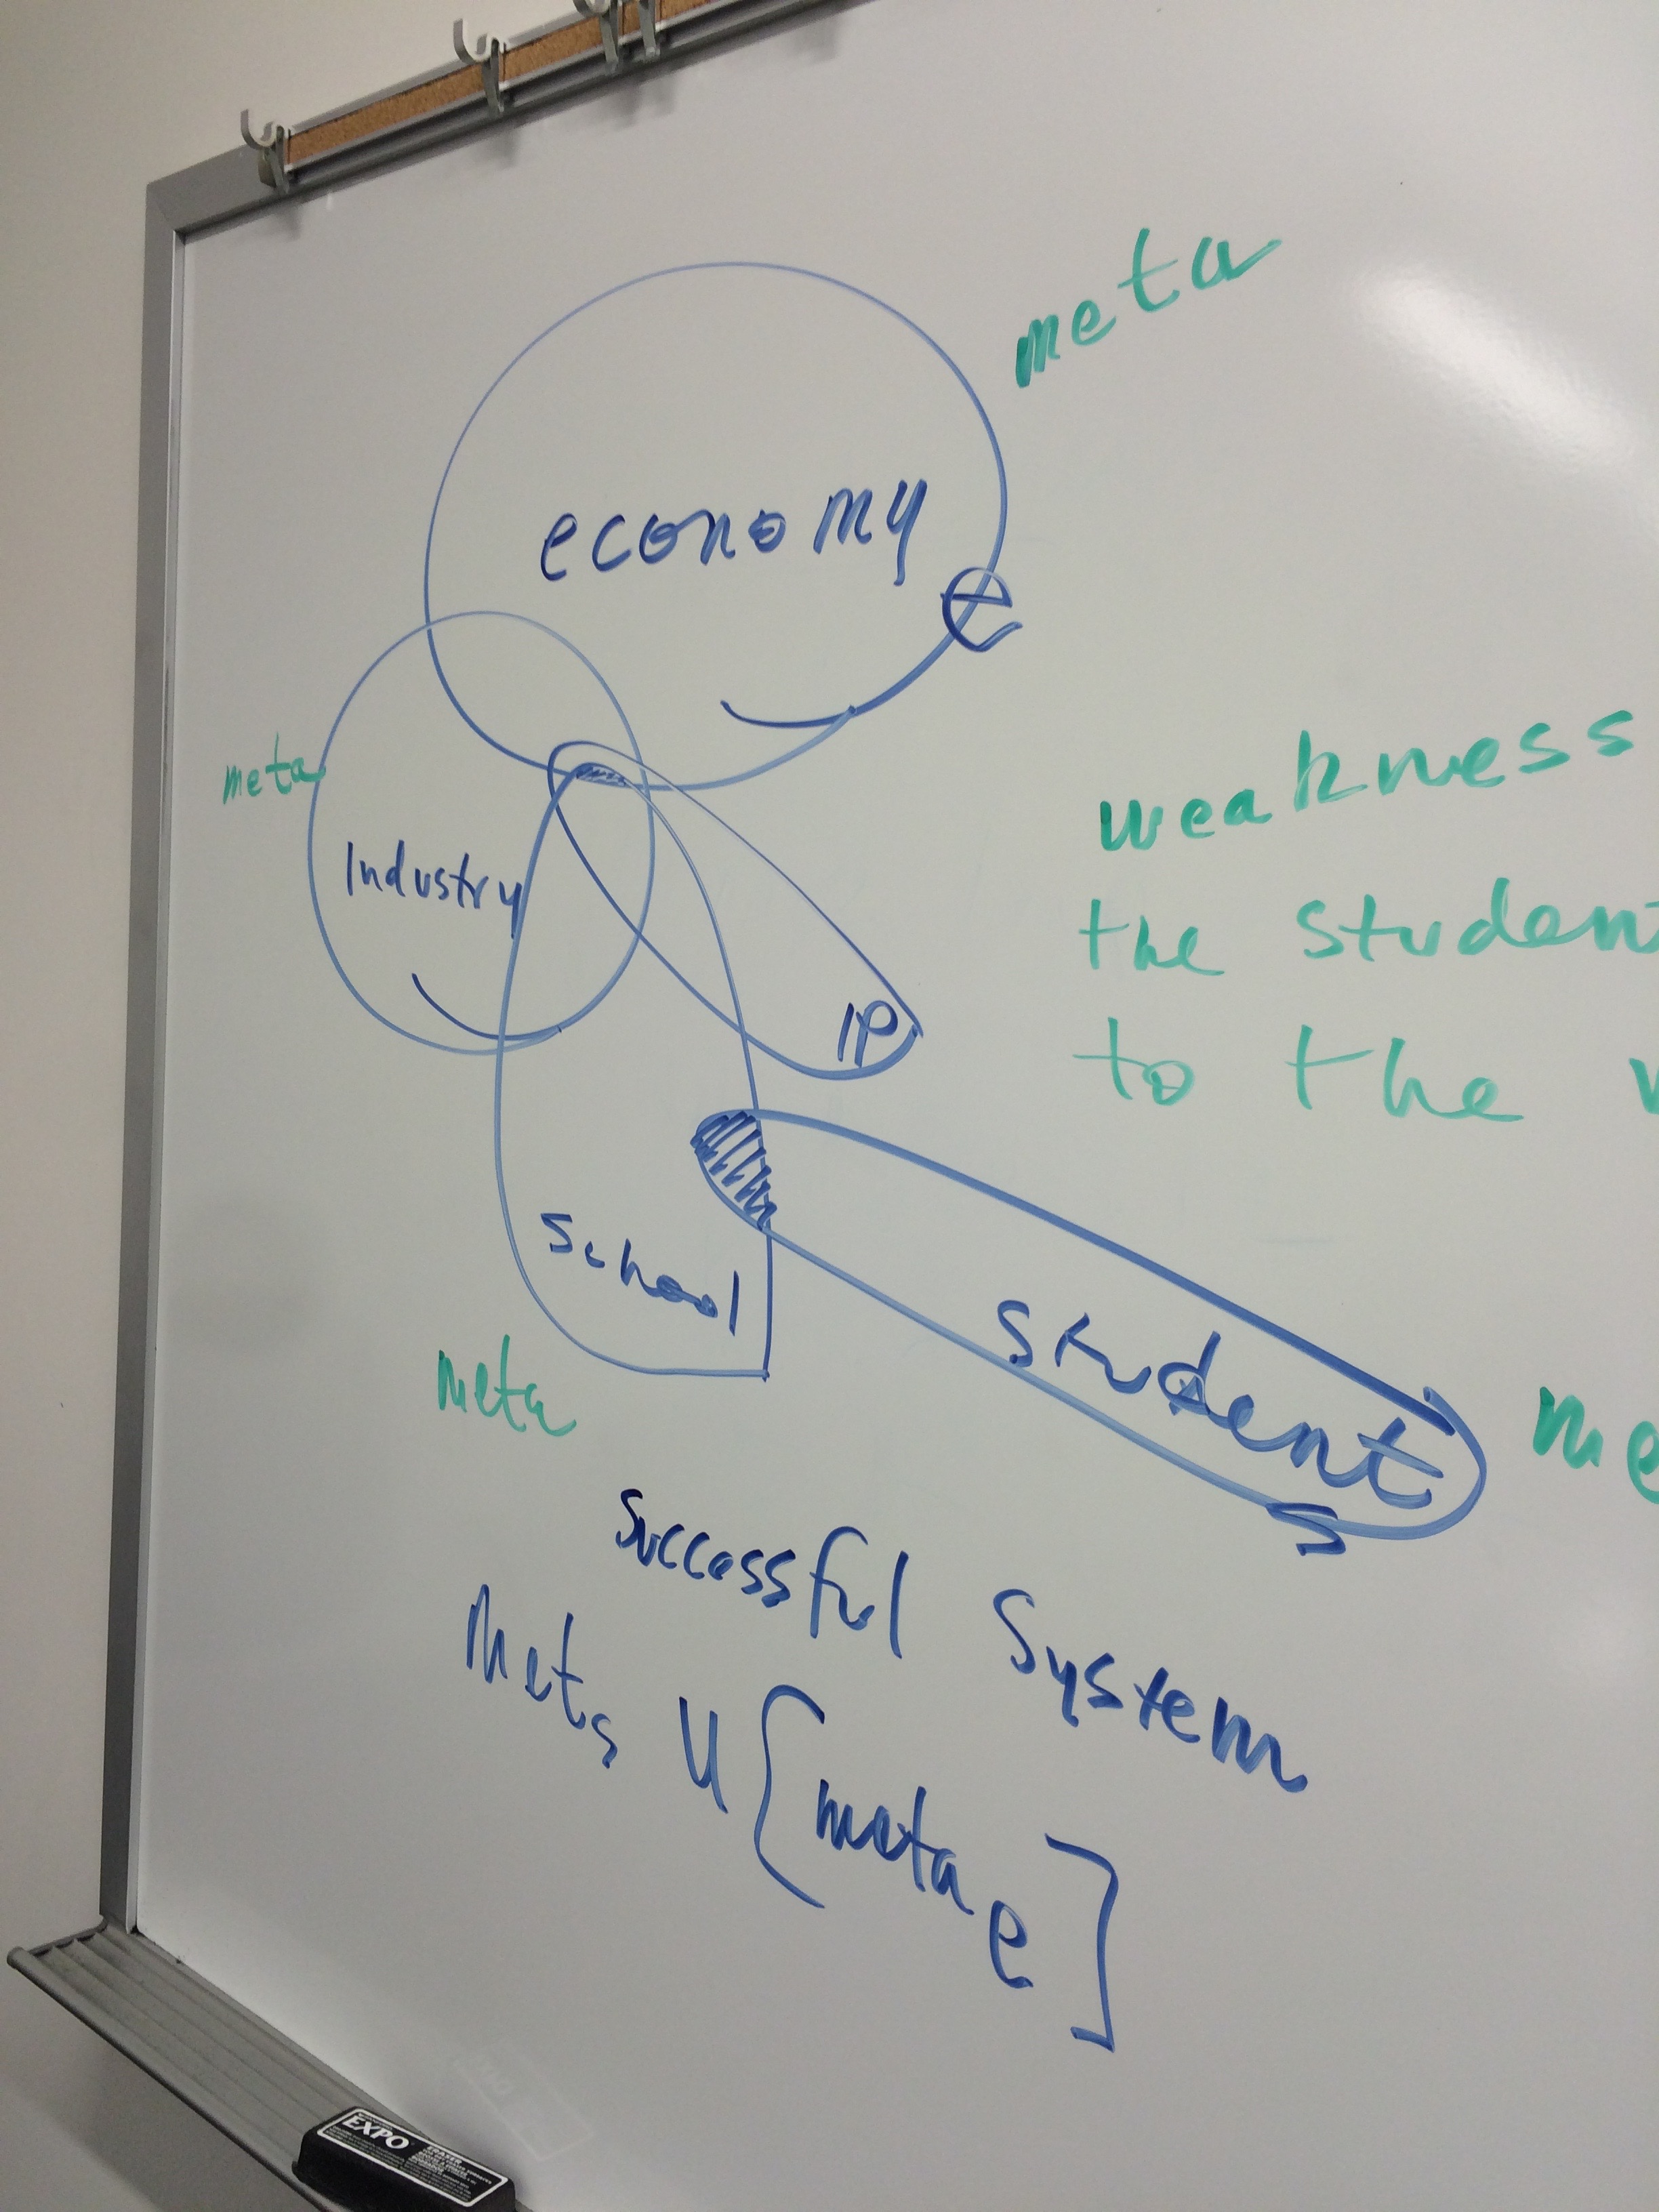 meta
economy
e
meta
Industry
weakness
the student
to the
IP
School
student
s
meta
me
Successful System
Meta s U [meta e]
EXPO
ERASER